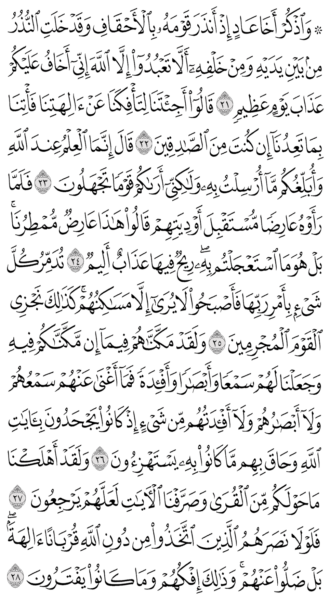 ۞ وَٱذْكُرْ أَخَا عَادٍ إِذْ أَنذَرَ قَوْمَهُۥ بِٱلْأَحْقَافِ وَقَدْ خَلَتِ ٱلنُّذُرُ
مِنۢ بَيْنِ يَدَيْهِ وَمِنْ خَلْفِهِۦٓ أَلَّا تَعْبُدُوٓا۟ إِلَّا ٱللَّهَ إِنِّىٓ أَخَافُ عَلَيْكُمْ
عَذَابَ يَوْمٍ عَظِيمٍ ٢١ قَالُوٓا۟ أَجِئْتَنَا لِتَأْفِكَنَا عَنْ ءَالِهَتِنَا فَأْتِنَا
بِمَا تَعِدُنَآ إِن كُنتَ مِنَ ٱلصَّٰدِقِينَ ٢٢ قَالَ إِنَّمَا ٱلْعِلْمُ عِندَ ٱللَّهِ
وَأُبَلِّغُكُم مَّآ أُرْسِلْتُ بِهِۦ وَلَٰكِنِّىٓ أَرَىٰكُمْ قَوْمًا تَجْهَلُونَ ٢٣ فَلَمَّا
رَأَوْهُ عَارِضًا مُّسْتَقْبِلَ أَوْدِيَتِهِمْ قَالُوا۟ هَٰذَا عَارِضٌ مُّمْطِرُنَا ۚ
بَلْ هُوَ مَا ٱسْتَعْجَلْتُم بِهِۦ ۖ رِيحٌ فِيهَا عَذَابٌ أَلِيمٌ ٢٤ تُدَمِّرُ كُلَّ
شَىْءٍۭ بِأَمْرِ رَبِّهَا فَأَصْبَحُوا۟ لَا يُرَىٰٓ إِلَّا مَسَٰكِنُهُمْ ۚ كَذَٰلِكَ نَجْزِى
ٱلْقَوْمَ ٱلْمُجْرِمِينَ ٢٥ وَلَقَدْ مَكَّنَّٰهُمْ فِيمَآ إِن مَّكَّنَّٰكُمْ فِيهِ
وَجَعَلْنَا لَهُمْ سَمْعًا وَأَبْصَٰرًا وَأَفْـِٔدَةً فَمَآ أَغْنَىٰ عَنْهُمْ سَمْعُهُمْ
وَلَآ أَبْصَٰرُهُمْ وَلَآ أَفْـِٔدَتُهُم مِّن شَىْءٍ إِذْ كَانُوا۟ يَجْحَدُونَ بِـَٔايَٰتِ
ٱللَّهِ وَحَاقَ بِهِم مَّا كَانُوا۟ بِهِۦ يَسْتَهْزِءُونَ ٢٦ وَلَقَدْ أَهْلَكْنَا
مَا حَوْلَكُم مِّنَ ٱلْقُرَىٰ وَصَرَّفْنَا ٱلْـَٔايَٰتِ لَعَلَّهُمْ يَرْجِعُونَ ٢٧
فَلَوْلَا نَصَرَهُمُ ٱلَّذِينَ ٱتَّخَذُوا۟ مِن دُونِ ٱللَّهِ قُرْبَانًا ءَالِهَةًۢ ۖ
بَلْ ضَلُّوا۟ عَنْهُمْ ۚ وَذَٰلِكَ إِفْكُهُمْ وَمَا كَانُوا۟ يَفْتَرُونَ ٢٨